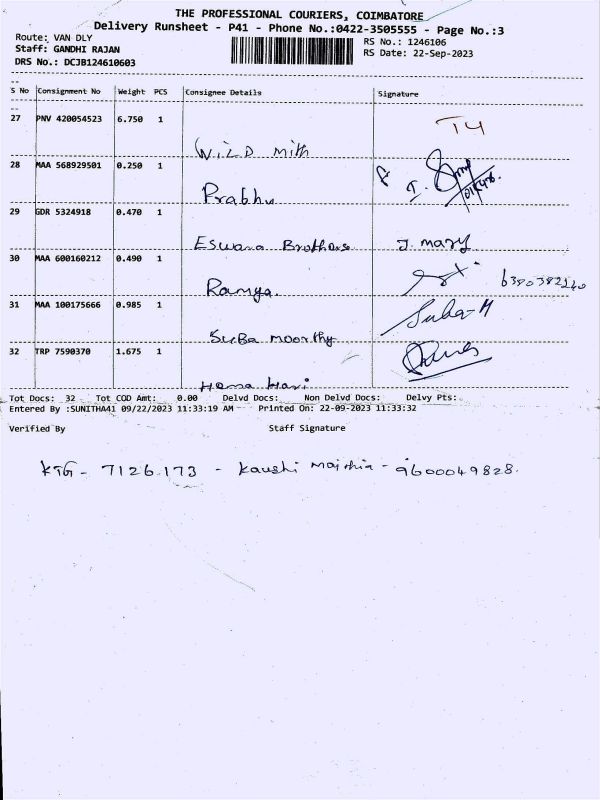 THE PROFESSIONAL COURIERS, COIMBATORE
Delivery Runsheet - P41 - Phone No.:0422-3505555 - Page No.:3
Route: VAN DLY
RS No.: 1246106
Staff: GANDHI RAJAN
RS Date: 22-Sep-2023
DRS No.: DCJB124610603
S No Consignment No Weight PCS Consignee Details Signature
27 PNV 420054523 6.750 1
Wild Mith T4
28 MAA 568929501 0.250 1
Prabhu
29 GDR 5324918 0.470 1
Eswara Brothers J. mary
30 MAA 600160212 0.490 1
Ramya 6380382240
31 MAA 100175666 0.985 1
SuBa moorthy Suba-M
32 TRP 7590370 1.675 1
Hema Hari
Tot Docs: 32 Tot COD Amt: 0.00 Delvd Docs: Non Delvd Docs: Delvy Pts:
Entered By :SUNITHA41 09/22/2023 11:33:19 AM Printed On: 22-09-2023 11:33:32
Verified By Staff Signature
KTG - 7126173 - Kaushi - 9600049828.